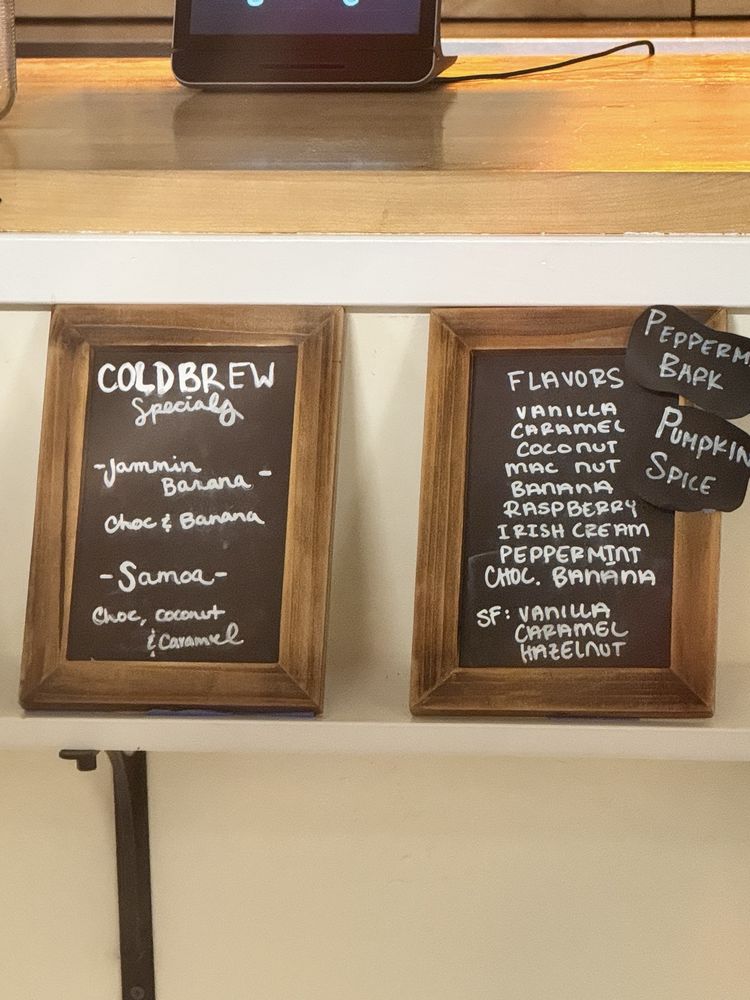 COLDBREW
Specials
-Jammin
Banana -
Choc & Banana
-Samoa-
Choc, coconut
& Caramel
FLAVORS
VANILLA
CARAMEL
COCONUT
MAC NUT
BANANA
RASPBERRY
IRISH CREAM
PEPPERMINT
CHOC. BANANA
SF: VANILLA
CARAMEL
HAZELNUT
PEPPERM
BARK
PUMPKIN
SPICE